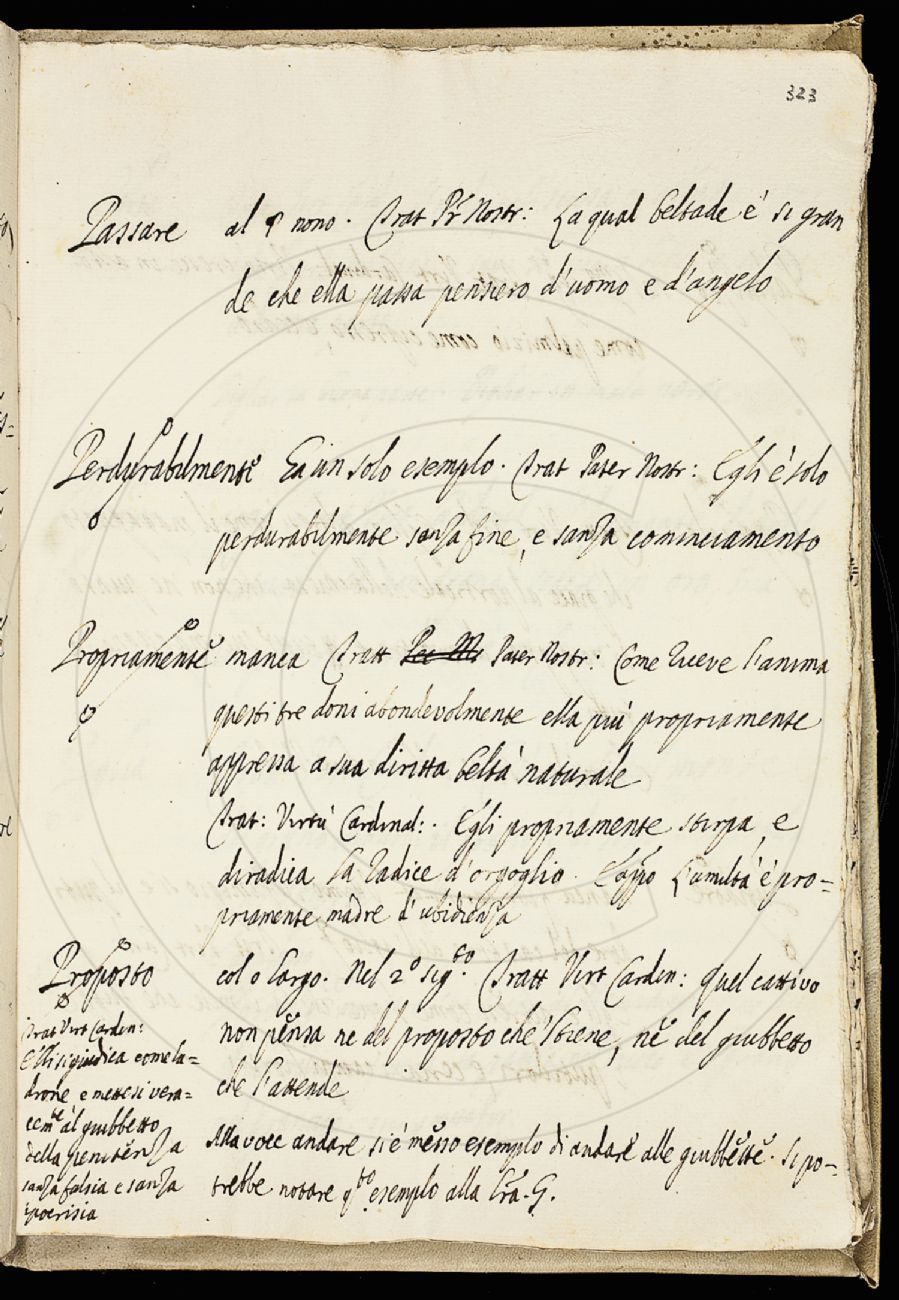 323
Passare al § nono. Trat Pr Nostr: La qual beltade è si gran
de che ella passa pensiero d'uomo e d'angelo
Perdurabilmente Ea un solo esemplo. Trat Pater Nostr: Egli è solo
perdurabilmente sanza fine, e sanza cominciamento
Propriamente manca Tratt Pater Nostr: Come riceve l'anima
questi tre doni abondevolmente ella più propriamente
appressa a sua diritta beltà naturale
Trat: Virtù Cardinal: Egli propriamente stirpa, e
diradica la radice d'orgoglio. E appo L'umiltà è pro=
priamente madre d'ubidienza
Proposto col o largo. Nel 2º sigto. Tratt Virt Carden: quel cattivo
non pensa ne del proposto che 'l tiene, ne del giubbetto
che l'attende
Alla voce andare si è messo esemplo di andare alle giubbette. Si po=
trebbe notare qto esemplo alla Lra. G.
Trat Virt Carden:
E' si giudica come la=
drone e mettesi vera=
cemte al giubbetto
della penitenza
sanza falsia e sanza
ipocrisia